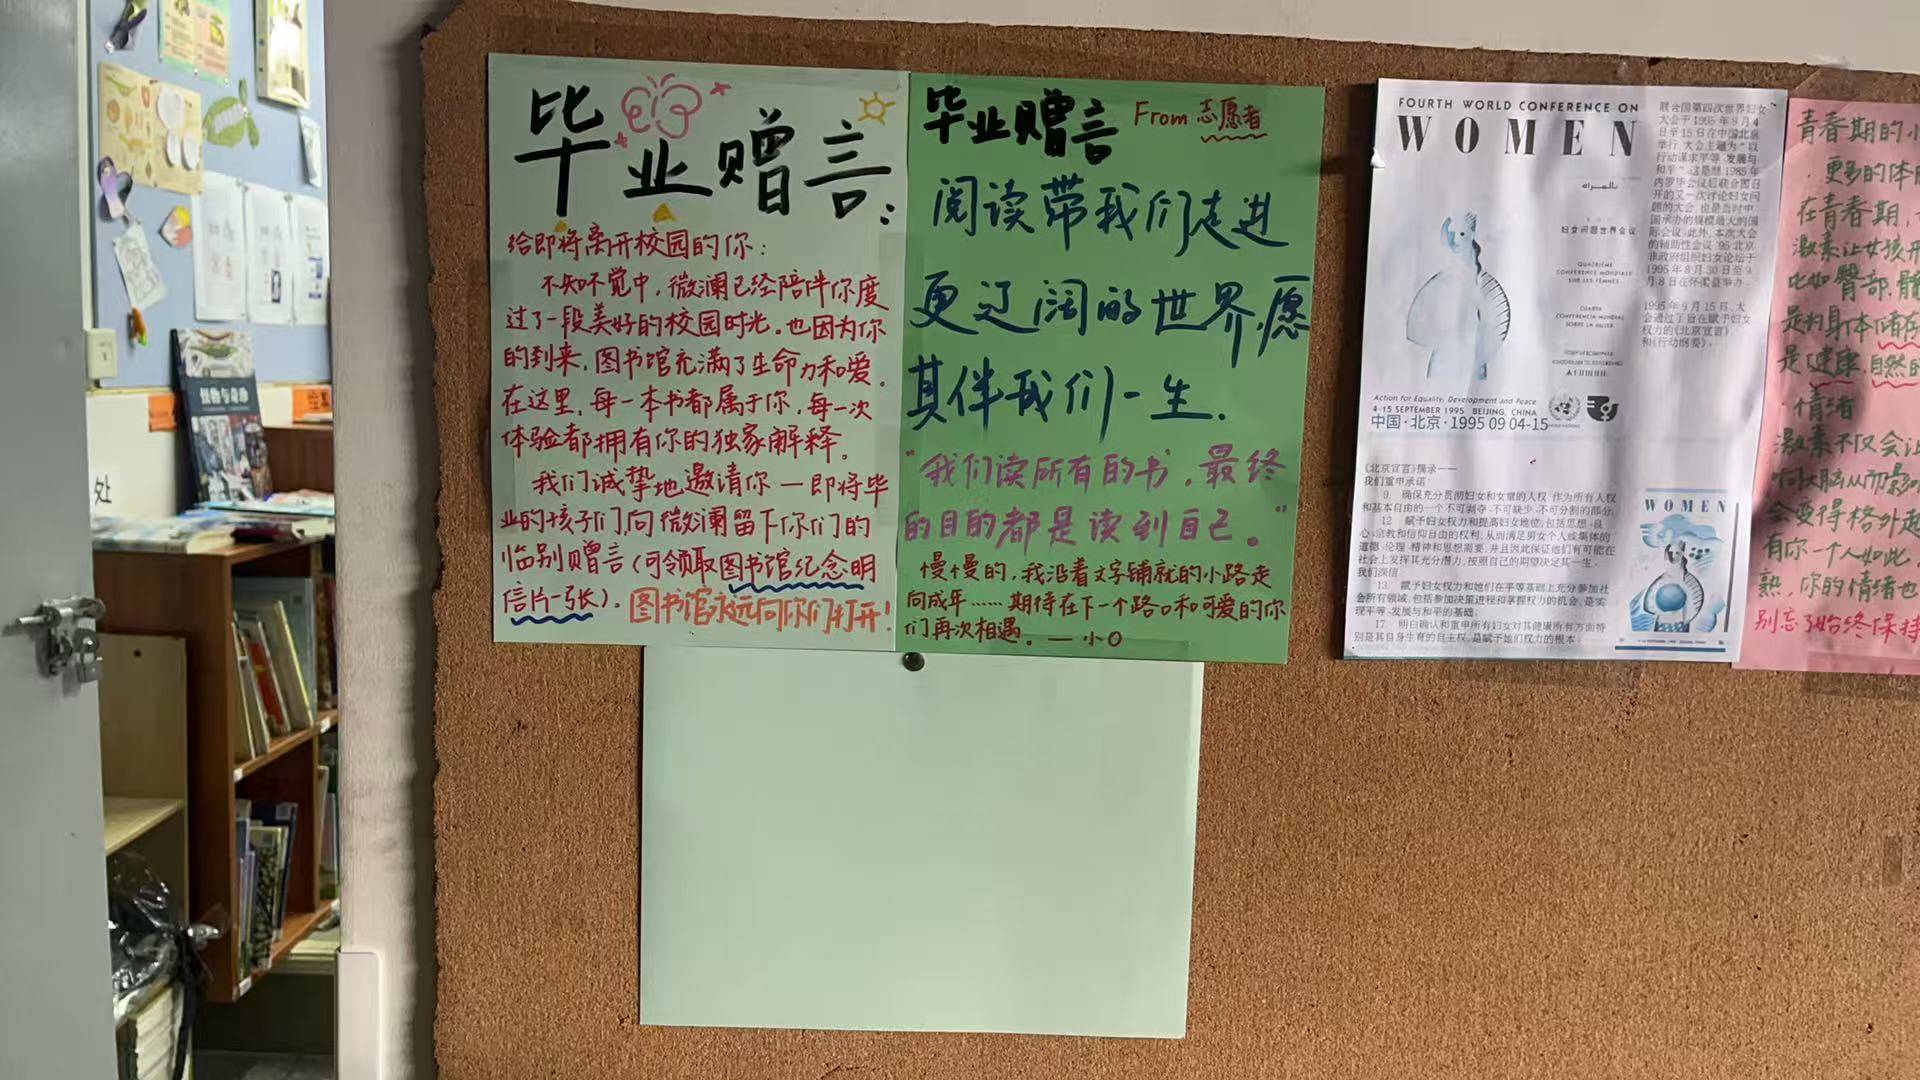 毕业赠言:
给即将离开校园的你:
不知不觉中,微澜已经陪伴你度
过了一段美好的校园时光。也因为你
的到来,图书馆充满了生命力和爱。
在这里,每一本书都属于你,每一次
体验都拥有你的独家解释。
我们诚挚地邀请你—即将毕
业的孩子们向微澜留下你们的
临别赠言(可领取图书馆纪念明
信片一张)。图书馆永远向你们打开!
毕业赠言 From 志愿者
阅读带我们走进
更辽阔的世界,愿
其伴我们一生.
"我们读所有的书,最终
的目的都是读到自己。"
慢慢的,我沿着文字铺就的小路走
向成年……期待在下一个路口和可爱的你
们再次相遇。—小O
FOURTH WORLD CONFERENCE ON
WOMEN
妇女问题世界会议
QUATRIÈME
CONFÉRENCE MONDIALE
SUR LES FEMMES
CUARTA
CONFERENCIA MUNDIAL
SOBRE LA MUJER
Action for Equality, Development and Peace
4-15 SEPTEMBER 1995 BEIJING, CHINA
中国·北京·1995 09 04-15
联合国第四次世界妇女
大会于1995年9月4
日至15日在中国北京
举行 大会主题为"以
行动谋求平等、发展与
和平"。这是继1985年
内罗毕会议后联合国召
开的又一次讨论妇女问
题的大会,也是当时中
国承办的规模最大的国
际会议。此外,本次大会
的辅助性会议'95北京
非政府组织妇女论坛于
1995年8月30日至9
月8日在怀柔县举办。
1995年9月15日,大
会通过了旨在赋予妇女
权力的《北京宣言》
和《行动纲要》。
《北京宣言》摘录——
我们重申承诺:
9. 确保充分贯彻妇女和女童的人权,作为所有人权
和基本自由的一个不可剥夺、不可缺少、不可分割的部分;
12. 赋予妇女权力和提高妇女地位,包括思想、良
心、宗教和信仰自由的权利,从而满足男女个人或集体的
道德、伦理、精神和思想需要,并且因此保证他们有可能在
社会上发挥其充分潜力,按照自己的期望决定其一生。
我们深信:
13. 赋予妇女权力和她们在平等基础上充分参加社
会所有领域,包括参加决策进程和掌握权力的机会,是实
现平等、发展与和平的基础;
17. 明白确认和重申所有妇女对其健康所有方面特
别是其自身生育的自主权,是赋予她们权力的根本;
WOMEN
青春期的小
·更多的体
在青春期,
激素让女孩开
比如臀部、
是为身体储存
是健康、自然的
·情绪
激素不仅会让
响大脑从而影响
会变得格外
有你一个人如此。
熟,你的情绪也
别忘了始终保持
怪物与奇珍
处